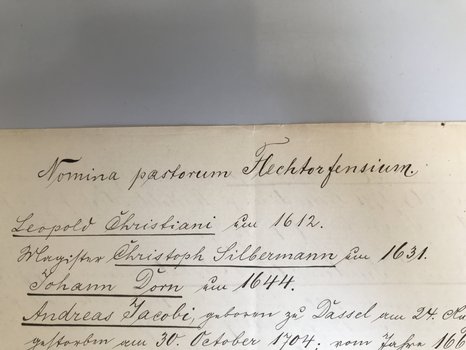 Nomina pastorum Flechtorfensium.
Leopold Christiani um 1612.
Magister Christoph Silbermann um 1631.
Johann Dorn um 1644.
Andreas Jacobi, geboren zu Dassel am 24.
gestorben am 30. October 1704; vom Jahre 166